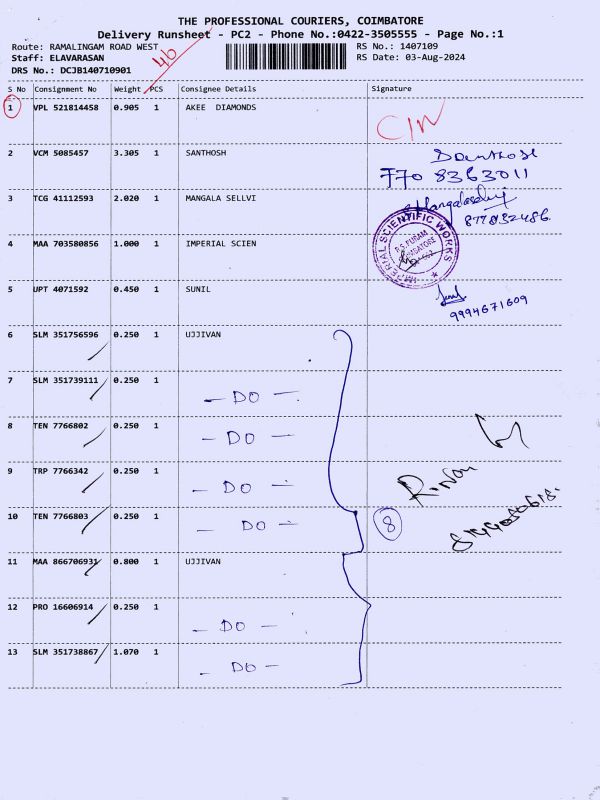 THE PROFESSIONAL COURIERS, COIMBATORE
Delivery Runsheet - PC2 - Phone No.:0422-3505555 - Page No.:1
Route: RAMALINGAM ROAD WEST
RS No.: 1407109
Staff: ELAVARASAN
RS Date: 03-Aug-2024
DRS No.: DCJB140710901
40
S No Consignment No Weight PCS Consignee Details Signature
1 VPL 521814458 0.905 1 AKEE DIAMONDS
2 VCM 5085457 3.305 1 SANTHOSH
770 8363011
3 TCG 41112593 2.020 1 MANGALA SELLVI
4 MAA 703580856 1.000 1 IMPERIAL SCIEN
IMPERIAL SCIENTIFIC WORKS
R.S. PURAM
COIMBATORE
5 UPT 4071592 0.450 1 SUNIL
9994671609
6 SLM 351756596 0.250 1 UJJIVAN
7 SLM 351739111 0.250 1 - DO -
8 TEN 7766802 0.250 1 - DO -
9 TRP 7766342 0.250 1 - DO -
10 TEN 7766803 0.250 1 - DO - 8
11 MAA 866706931 0.800 1 UJJIVAN
12 PRO 16606914 0.250 1 - DO -
13 SLM 351738867 1.070 1 - DO -